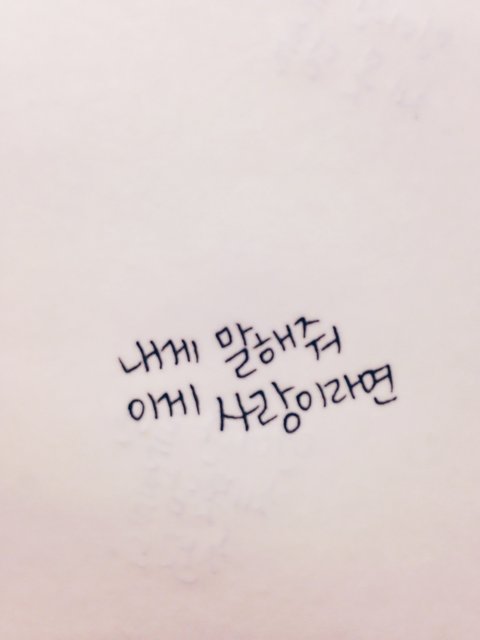 내게 말해줘
이게 사랑이라면